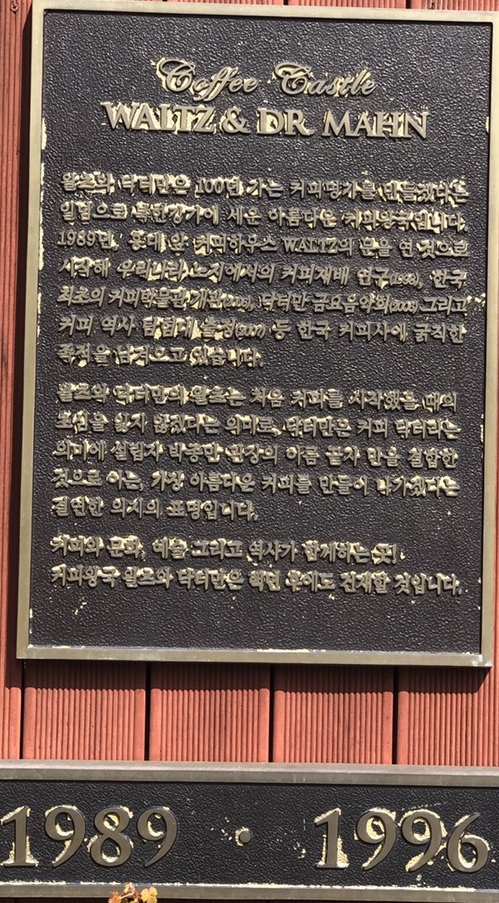 Coffee Castle
WALTZ & DR. MAHN
왈츠와 닥터만은 100년 가는 커피명가를 만들겠다는
일념으로 북한강가에 세운 아름다운 커피왕국입니다.
1989년, 홍대 앞 커피하우스 WALTZ의 문을 연 것으로
시작해 우리나라 노지에서의 커피재배 연구(1998), 한국
최초의 커피박물관 개관(2006), 닥터만 금요음악회(2006) 그리고
커피 역사 탐험대 출정(2007) 등 한국 커피사에 굵직한
족적을 남겨오고 있습니다.
왈츠와 닥터만의 왈츠는 처음 커피를 시작했을 때의
초심을 잃지 않겠다는 의미로, 닥터만은 커피 닥터라는
의미에 설립자 박종만 관장의 이름 끝자 만을 결합한
것으로 이는, 가장 아름다운 커피를 만들어 나가겠다는
결연한 의지의 표명입니다.
커피와 문화, 예술 그리고 역사가 함께하는 곳!
커피왕국 왈츠와 닥터만은 백년 후에도 건재할 것입니다.
1989 · 1996